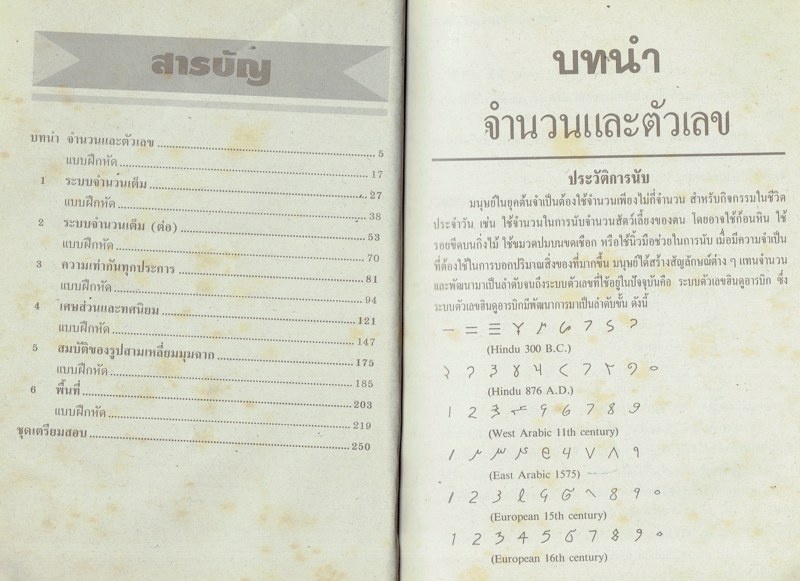 สารบัญ
บทนำ จำนวนและตัวเลข 5
แบบฝึกหัด 17
1 ระบบจำนวนเต็ม 27
แบบฝึกหัด 38
2 ระบบจำนวนเต็ม (ต่อ) 53
แบบฝึกหัด 70
3 ความเท่ากันทุกประการ 81
แบบฝึกหัด 94
4 เศษส่วนและทศนิยม 121
แบบฝึกหัด 147
5 สมบัติของรูปสามเหลี่ยมมุมฉาก 175
แบบฝึกหัด 185
6 พื้นที่ 203
แบบฝึกหัด 219
ชุดเตรียมสอบ 250
บทนำ
จำนวนและตัวเลข
ประวัติการนับ
มนุษย์ในยุคต้นจำเป็นต้องใช้จำนวนเพียงไม่กี่จำนวน สำหรับกิจกรรมในชีวิต
ประจำวัน เช่น ใช้จำนวนในการนับจำนวนสัตว์เลี้ยงของตน โดยอาจใช้ก้อนหิน ใช้
รอยขีดบนกิ่งไม้ ใช้ขมวดปมบนขดเชือก หรือใช้นิ้วมือช่วยในการนับ เมื่อมีความจำเป็น
ที่ต้องใช้ในการบอกปริมาณสิ่งของที่มากขึ้น มนุษย์ได้สร้างสัญลักษณ์ต่าง ๆ แทนจำนวน
และพัฒนามาเป็นลำดับจนถึงระบบตัวเลขที่ใช้อยู่ในปัจจุบันคือ ระบบตัวเลขฮินดูอารบิก ซึ่ง
ระบบตัวเลขฮินดูอารบิกมีพัฒนาการมาเป็นลำดับขั้น ดังนี้
(Hindu 300 B.C.)
(Hindu 876 A.D.)
(West Arabic 11th century)
(East Arabic 1575)
(European 15th century)
1 2 3 4 5 6 7 8 9 0
(European 16th century)